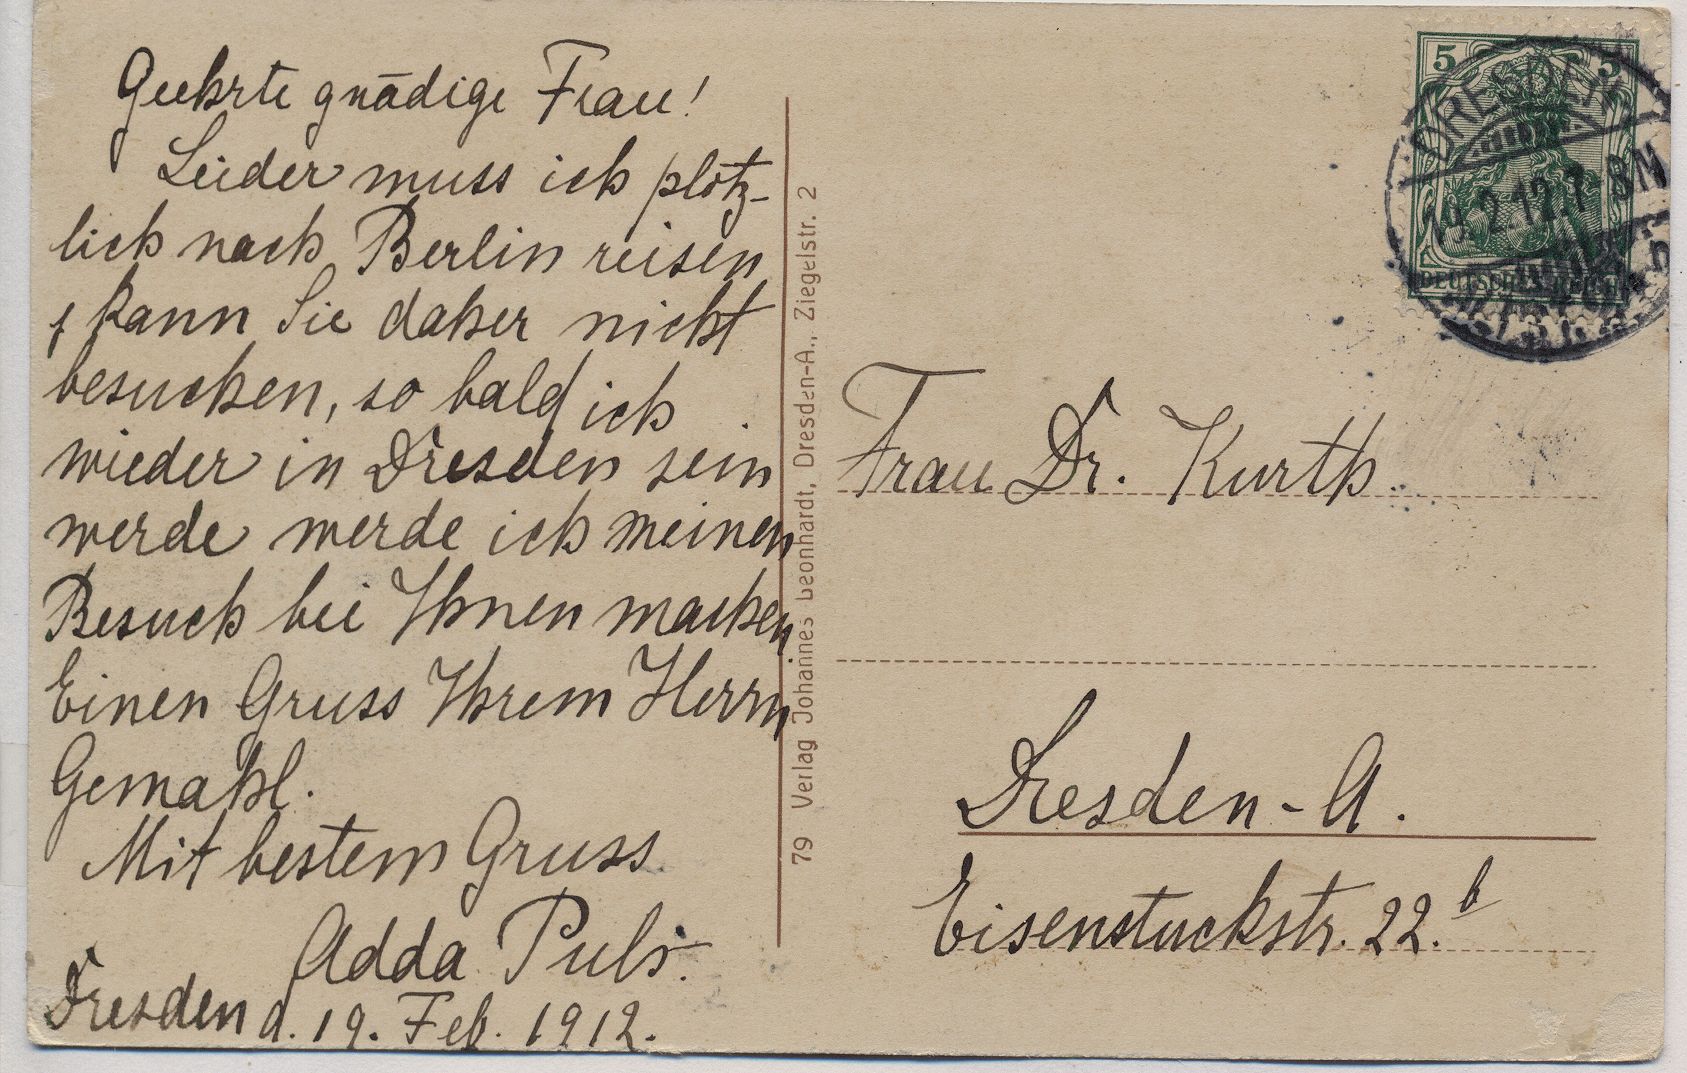 Geehrte gnädige Frau!
Leider muss ich plötz-
lich nach Berlin reisen
& kann Sie daher nicht
besuchen, so bald ich
wieder in Dresden sein
werde werde ich meinen
Besuch bei Ihnen machen.
Einen Gruss Ihrem Herrn
Gemahl.
Mit bestem Gruss
Adda Puls.
Dresden d. 19. Feb. 1912.
79 Verlag Johannes Leonhardt, Dresden-A., Ziegelstr. 2
5 5
DEUTSCHES REICH
DRESDEN
19.2.12.7-8N
Frau Dr. Kurth
Dresden-A.
Eisenstuckstr. 22.b